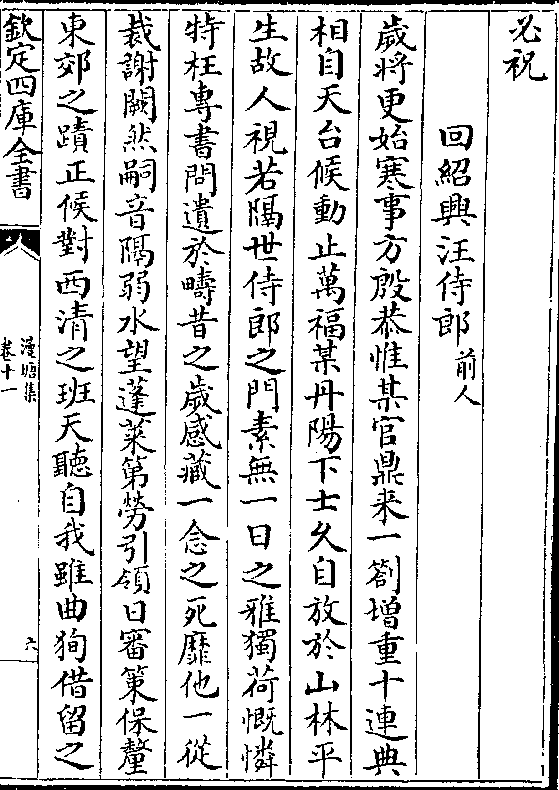 必祝
回紹興汪侍郎前人
歲將更始寒事方殷恭惟某官鼎来一劄增重十連典
相自天台候動止萬福某丹陽下士久自放於山林平
生故人視若隔世侍郎之門素無一日之雅獨荷慨憐
特枉專書問遺於疇昔之歲感藏一念之死靡他一從
裁謝闕然嗣音隔弱水望蓬萊第勞引領日審策保釐
東郊之蹟正候對西清之班天聽自我雖曲狥借留之
欽定四庫全書
漫塘集
卷十一
六